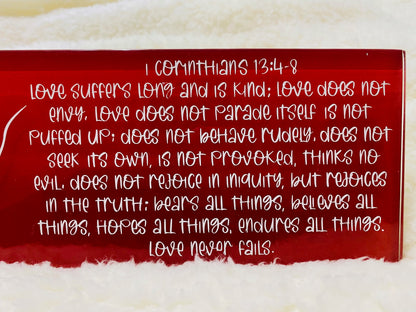 1 Corinthians 13:4-8
Love suffers long and is kind; love does not
envy. Love does not parade itself is not
puffed up; does not behave rudely, does not
seek its own, is not provoked, thinks no
evil. does not rejoice in iniquity, but rejoices
in the truth; bears all things, believes all
things, hopes all things, endures all things.
Love never fails.